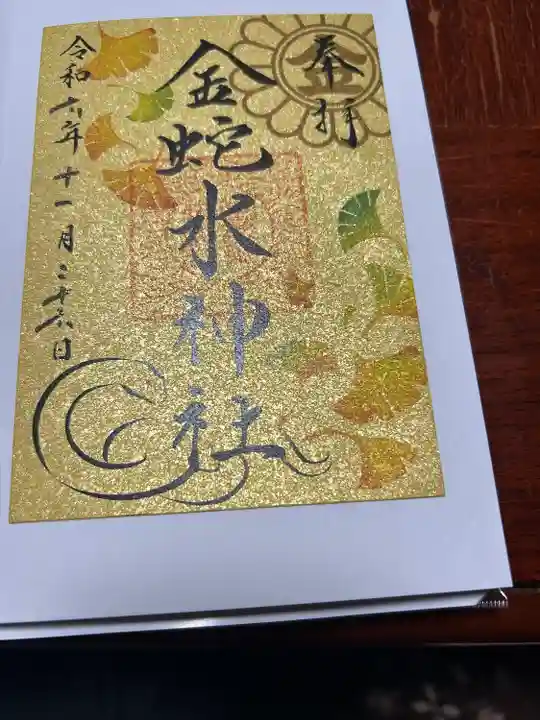 奉拝
金
金蛇水神社
令和六年十一月二十六日